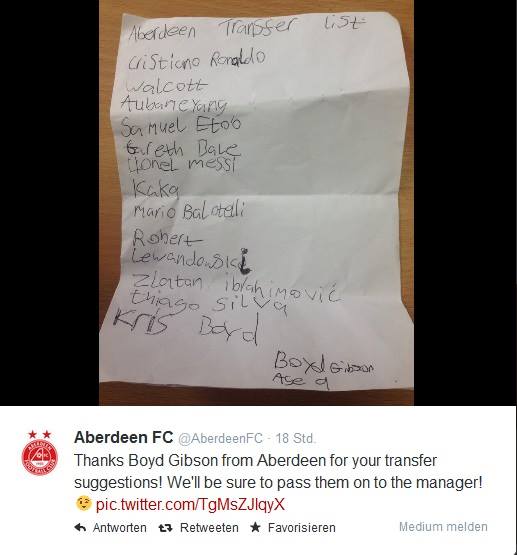 Aberdeen Transfer list
Cristiano Ronaldo
Walcott
Aubaneyang
Samuel Eto'o
Gareth Bale
Lionel messi
Kaka
Mario Balotelli
Robert
Lewandowski
Zlatan ibrahimović
thiago silva
Kris Boyd
Boyd Gibson
Age 9
Aberdeen FC @AberdeenFC · 18 Std.
Thanks Boyd Gibson from Aberdeen for your transfer
suggestions! We'll be sure to pass them on to the manager!
😉 pic.twitter.com/TgMsZJlqyX
Antworten Retweeten Favorisieren Medium melden